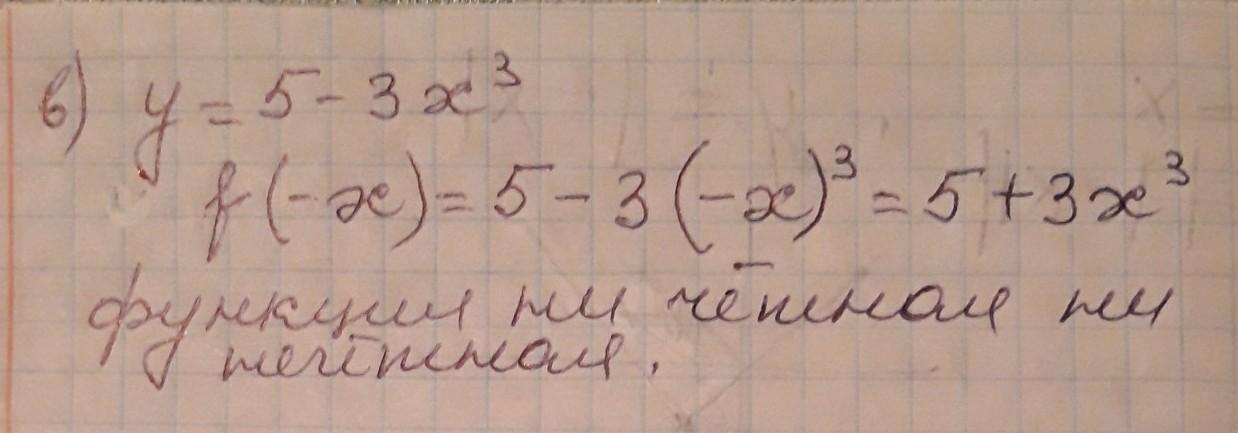 в) y = 5 - 3x³
f(-x) = 5 - 3(-x)³ = 5 + 3x³
функция ни чётная ни
нечётная.